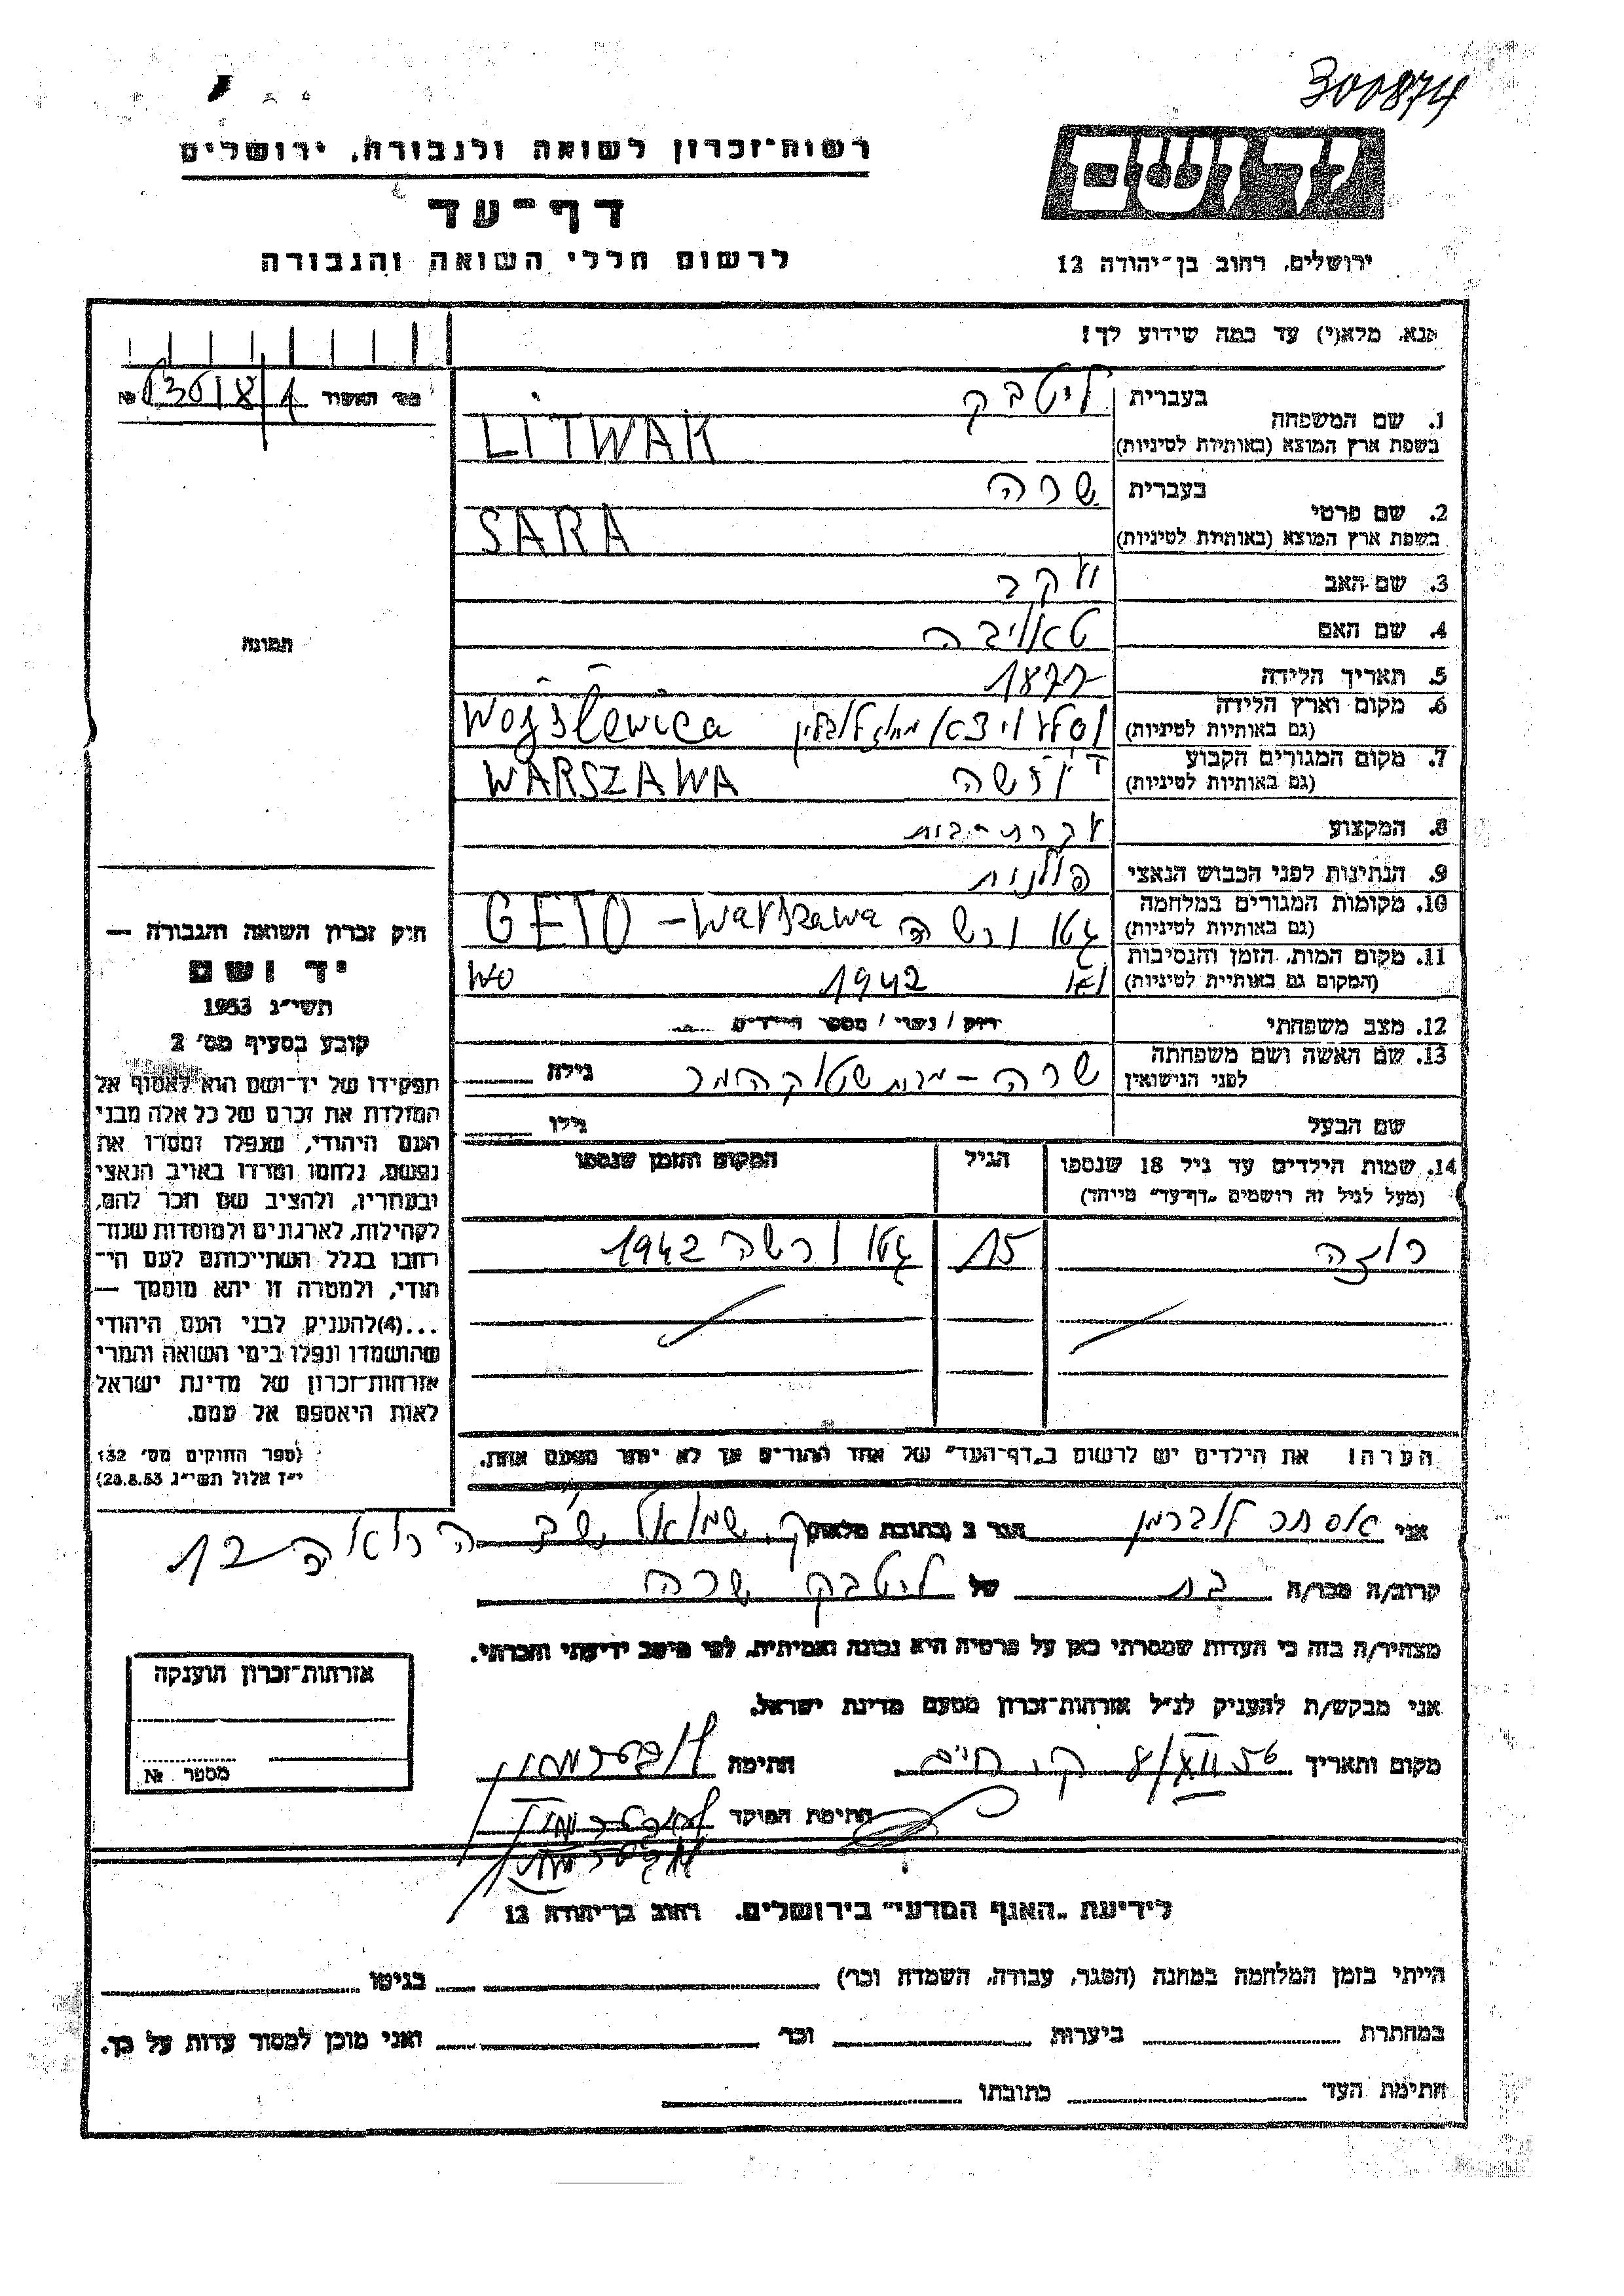 300874
רשות־זכרון לשואה ולגבורה, ירושלים
יד ושם
דף־עד
לרשום חללי השואה והגבורה
ירושלים, רחוב בן־יהודה 12
נא, מלא(י) עד כמה שידוע לך!
מס' האשור №
1. שם המשפחה
בעברית ליטבק
בשפת ארץ המוצא (באותיות לטיניות) LITWAK
2. שם פרטי
בעברית שרה
בשפת ארץ המוצא (באותיות לטיניות) SARA
3. שם האב יעקב
4. שם האם טאויבה
תמונה
5. תאריך הלידה 1877
6. מקום וארץ הלידה
(גם באותיות לטיניות) Wojslawica
7. מקום המגורים הקבוע
(גם באותיות לטיניות) WARSZAWA
8. המקצוע עקרת־בית
9. הנתינות לפני הכבוש הנאצי פולנית
10. מקומות המגורים במלחמה
(גם באותיות לטיניות) גטו ורשה GETO – Warszawa
11. מקום המות, הזמן והנסיבות
(המקום גם באותיות לטיניות) 1942
12. מצב משפחתי רווק / נשוי / מספר הילדים
13. שם האשה ושם משפחתה
לפני הנישואין שרה – גילה
שם הבעל גילו
14. שמות הילדים עד גיל 18 שנספו הגיל המקום והזמן שנספו
(מעל לגיל זה רושמים „דף־עד" מיוחד)
רוזה 15 גטו ורשה 1942
הערה! את הילדים יש לרשום ב„דף־העד" של אחד ההורים אך לא יותר מפעם אחת.
חוק זכרון השואה והגבורה —
יד ושם
תשי"ג 1953
קובע בסעיף מס' 2
תפקידו של יד־ושם הוא לאסוף אל
המולדת את זכרם של כל אלה מבני
העם היהודי, שנפלו ומסרו את
נפשם, נלחמו ומרדו באויב הנאצי
ובעוזריו, ולהציב שם וזכר להם,
לקהילות, לארגונים ולמוסדות שנח־
רבו בגלל השתייכותם לעם הי־
הודי, ולמטרה זו יהא מוסמך —
...(4)להעניק לבני העם היהודי
שהושמדו ונפלו בימי השואה והמרי
אזרחות־זכרון של מדינת ישראל
לאות היאספם אל עמם.
(ספר החוקים מס' 132
י"ז אלול תשי"ג 28.8.53)
אני אסתר ליברמן הגר ב (כתובת מלאה) ק. שמואל
קרוב/ה מכר/ה בת של ליטבק שרה
מצהיר/ה בזה כי העדות שמסרתי כאן על פרטיה היא נכונה ואמיתית, לפי מיטב ידיעתי והכרתי.
אני מבקש/ת להעניק לנ"ל אזרחות־זכרון מטעם מדינת ישראל.
מקום ותאריך ק. חיים 8/XII 56 חתימה
חתימת הפוקד
אזרחות־זכרון הוענקה
מספר №
לידיעת „האגף המדעי" בירושלים, רחוב בן־יהודה 12
הייתי בזמן המלחמה במחנה (הסגר, עבודה, השמדה וכו') בגיטו
במחתרת ביערות וכו' ואני מוכן למסור עדות על כך.
חתימת העד כתובתו